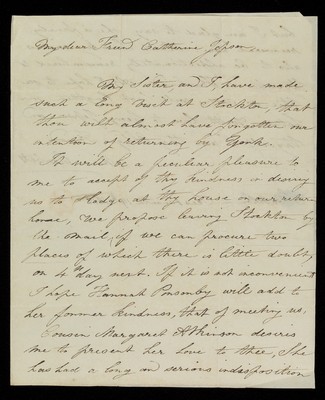 My dear Friend Catherine Jepson
My Sister and I, have made
such a long visit at Stockton, that
thou wilt almost have forgotten our
intention of returning by York.
It will be a peculiar pleasure to
me to accept of thy kindness in desiring
us to lodge at thy house on our return
home, We propose leaving Stockton by
the mail, if we can procure two
places of which there is little doubt,
on 4th day next. If it is not inconvenient
I hope Hannah Ponsonby will add to
her former kindness, that of meeting us,
Cousin Margaret Atkinson desires
me to present her love to thee, She
has had a long and serious indisposition